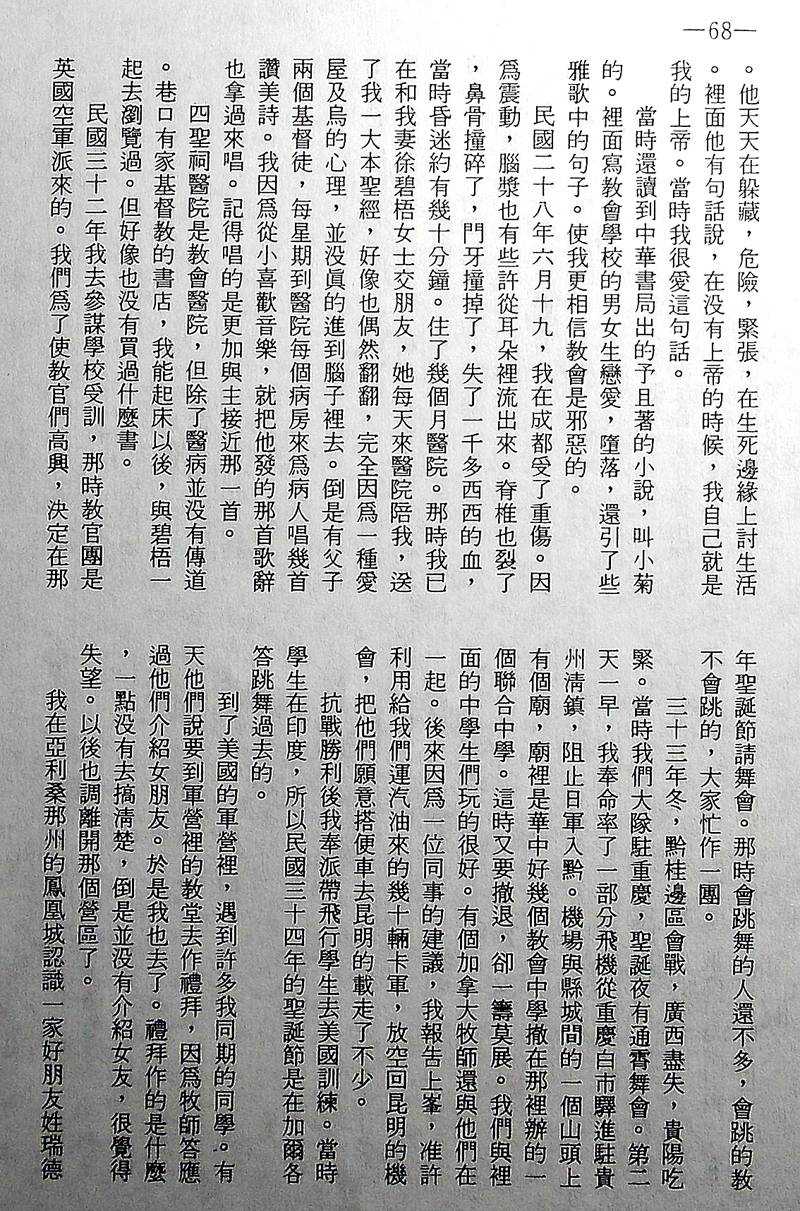 —68—
。他天天在躲藏，危險，緊張，在生死邊緣上討生活
。裡面他有句話說，在没有上帝的時候，我自己就是
我的上帝。當時我很愛這句話。
當時還讀到中華書局出的予且著的小說，叫小菊
的。裡面寫教會學校的男女生戀愛，墮落，還引了些
雅歌中的句子。使我更相信教會是邪惡的。
民國二十八年六月十九，我在成都受了重傷。因
爲震動，腦漿也有些許從耳朶裡流出來。脊椎也裂了
，鼻骨撞碎了，門牙撞掉了，失了一千多西西的血，
當時昏迷約有幾十分鐘。住了幾個月醫院。那時我已
在和我妻徐碧梧女士交朋友，她每天來醫院陪我，送
了我一大本聖經，好像也偶然翻翻，完全因爲一種愛
屋及烏的心理，並没眞的進到腦子裡去。倒是有父子
兩個基督徒，每星期到醫院每個病房來爲病人唱幾首
讚美詩。我因爲從小喜歡音樂，就把他發的那首歌辭
也拿過來唱。記得唱的是更加與主接近那一首。
四聖祠醫院是教會醫院，但除了醫病並没有傳道
。巷口有家基督教的書店，我能起床以後，與碧梧一
起去瀏覽過。但好像也没有買過什麼書。
民國三十二年我去參謀學校受訓，那時教官團是
英國空軍派來的。我們爲了使教官們高興，決定在那
年聖誕節請舞會。那時會跳舞的人還不多，會跳的教
不會跳的，大家忙作一團。
三十三年冬，黔桂邊區會戰，廣西盡失，貴陽吃
緊。當時我們大隊駐重慶，聖誕夜有通霄舞會。第二
天一早，我奉命率了一部分飛機從重慶白市驛進駐貴
州清鎮，阻止日軍入黔。機場與縣城間的一個山頭上
有個廟，廟裡是華中好幾個教會中學撤在那裡辦的一
個聯合中學。這時又要撤退，卻一籌莫展。我們與裡
面的中學生們玩的很好。有個加拿大牧師還與他們在
一起。後來因爲一位同事的建議，我報告上峯，准許
利用給我們運汽油來的幾十輛卡軍，放空回昆明的機
會，把他們願意搭便車去昆明的載走了不少。
抗戰勝利後我奉派帶飛行學生去美國訓練。當時
學生在印度，所以民國三十四年的聖誕節是在加爾各
答跳舞過去的。
到了美國的軍營裡，遇到許多我同期的同學。有
天他們說要到軍營裡的教堂去作禮拜，因爲牧師答應
過他們介紹女朋友。於是我也去了。禮拜作的是什麼
，一點没有去搞清楚，倒是並没有介紹女友，很覺得
失望。以後也調離開那個營區了。
我在亞利桑那州的鳳凰城認識一家好朋友姓瑞德